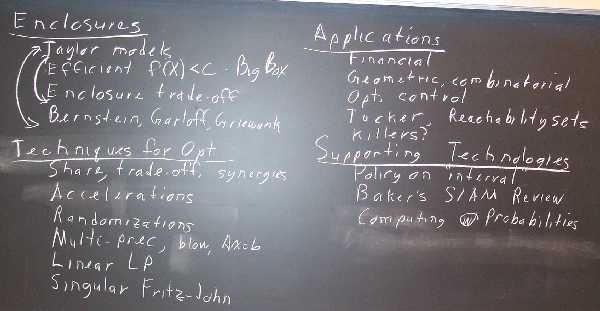 Enclosures
Taylor models
Efficient f(X)<C - Big Box
Enclosure trade-off
Bernstein, Garloff, Griewank
Techniques for Opt
Share, trade-off, synergies
Accelerations
Randomizations
Multi-prec, blow, Ax=b
Linear LP
Singular Fritz-John
Applications
Financial
Geometric, combinatorial
Opt. control
Tucker, Reachability sets
Killers?
Supporting Technologies
Policy on interval
Baker's SIAM Review
Computing w Probabilities